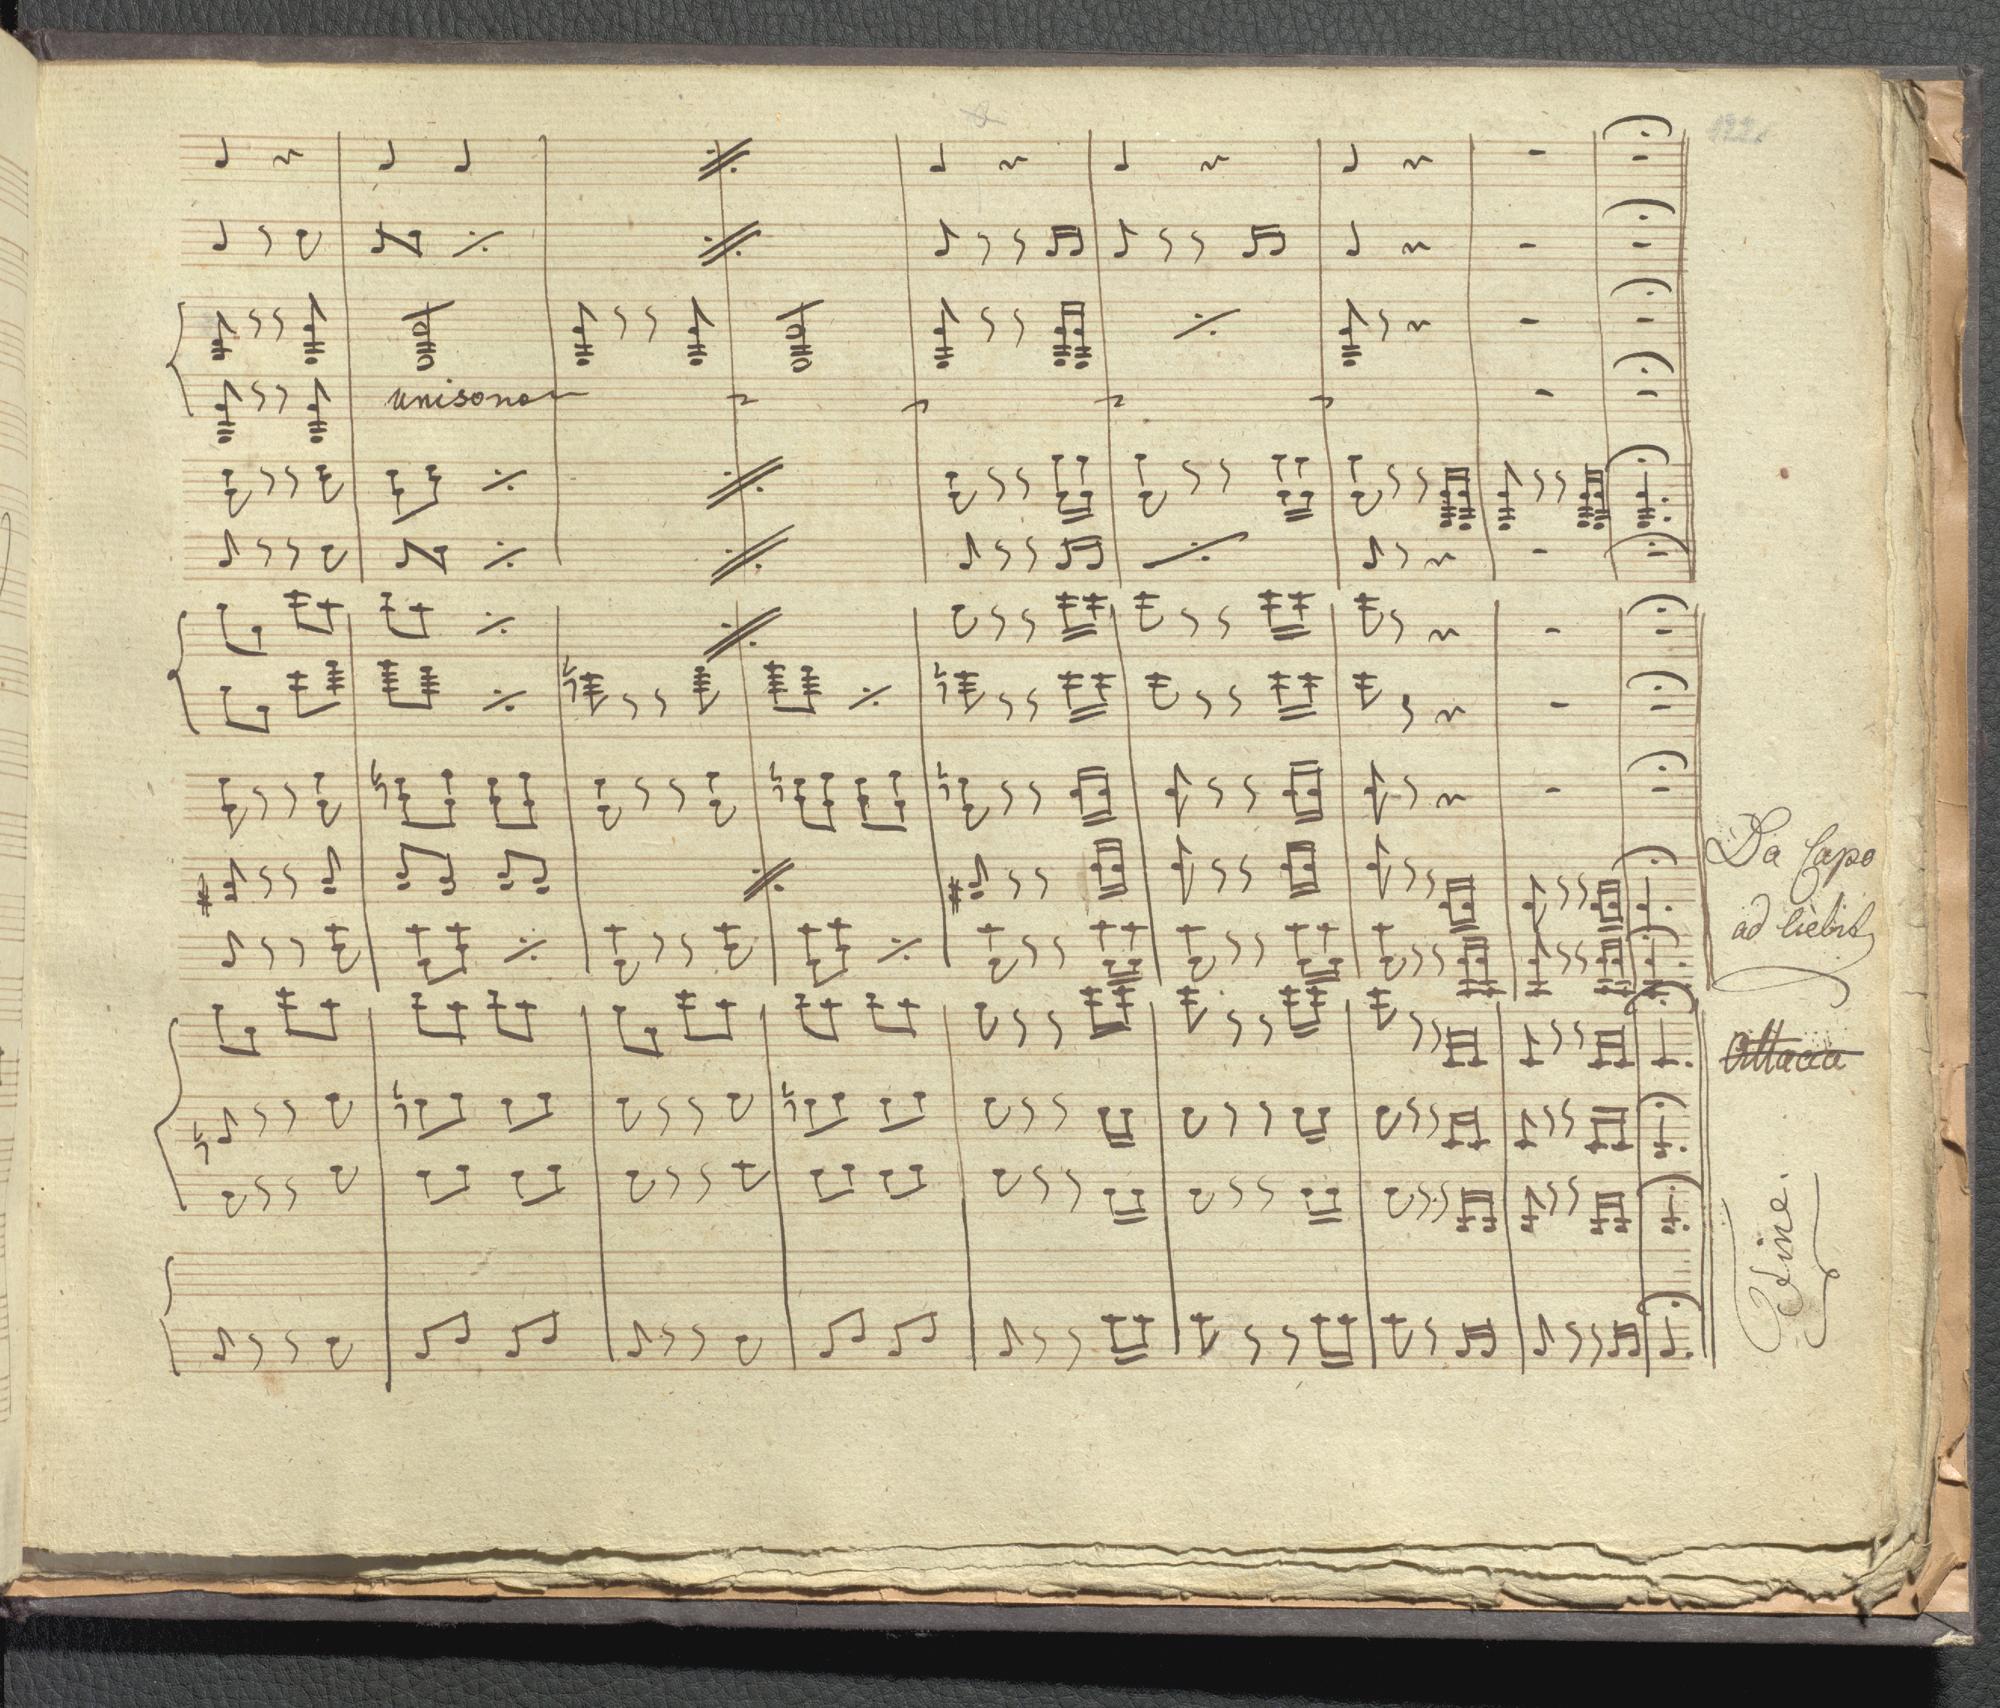 unisono
Da Capo
ad liebit
Attacca
Fine.